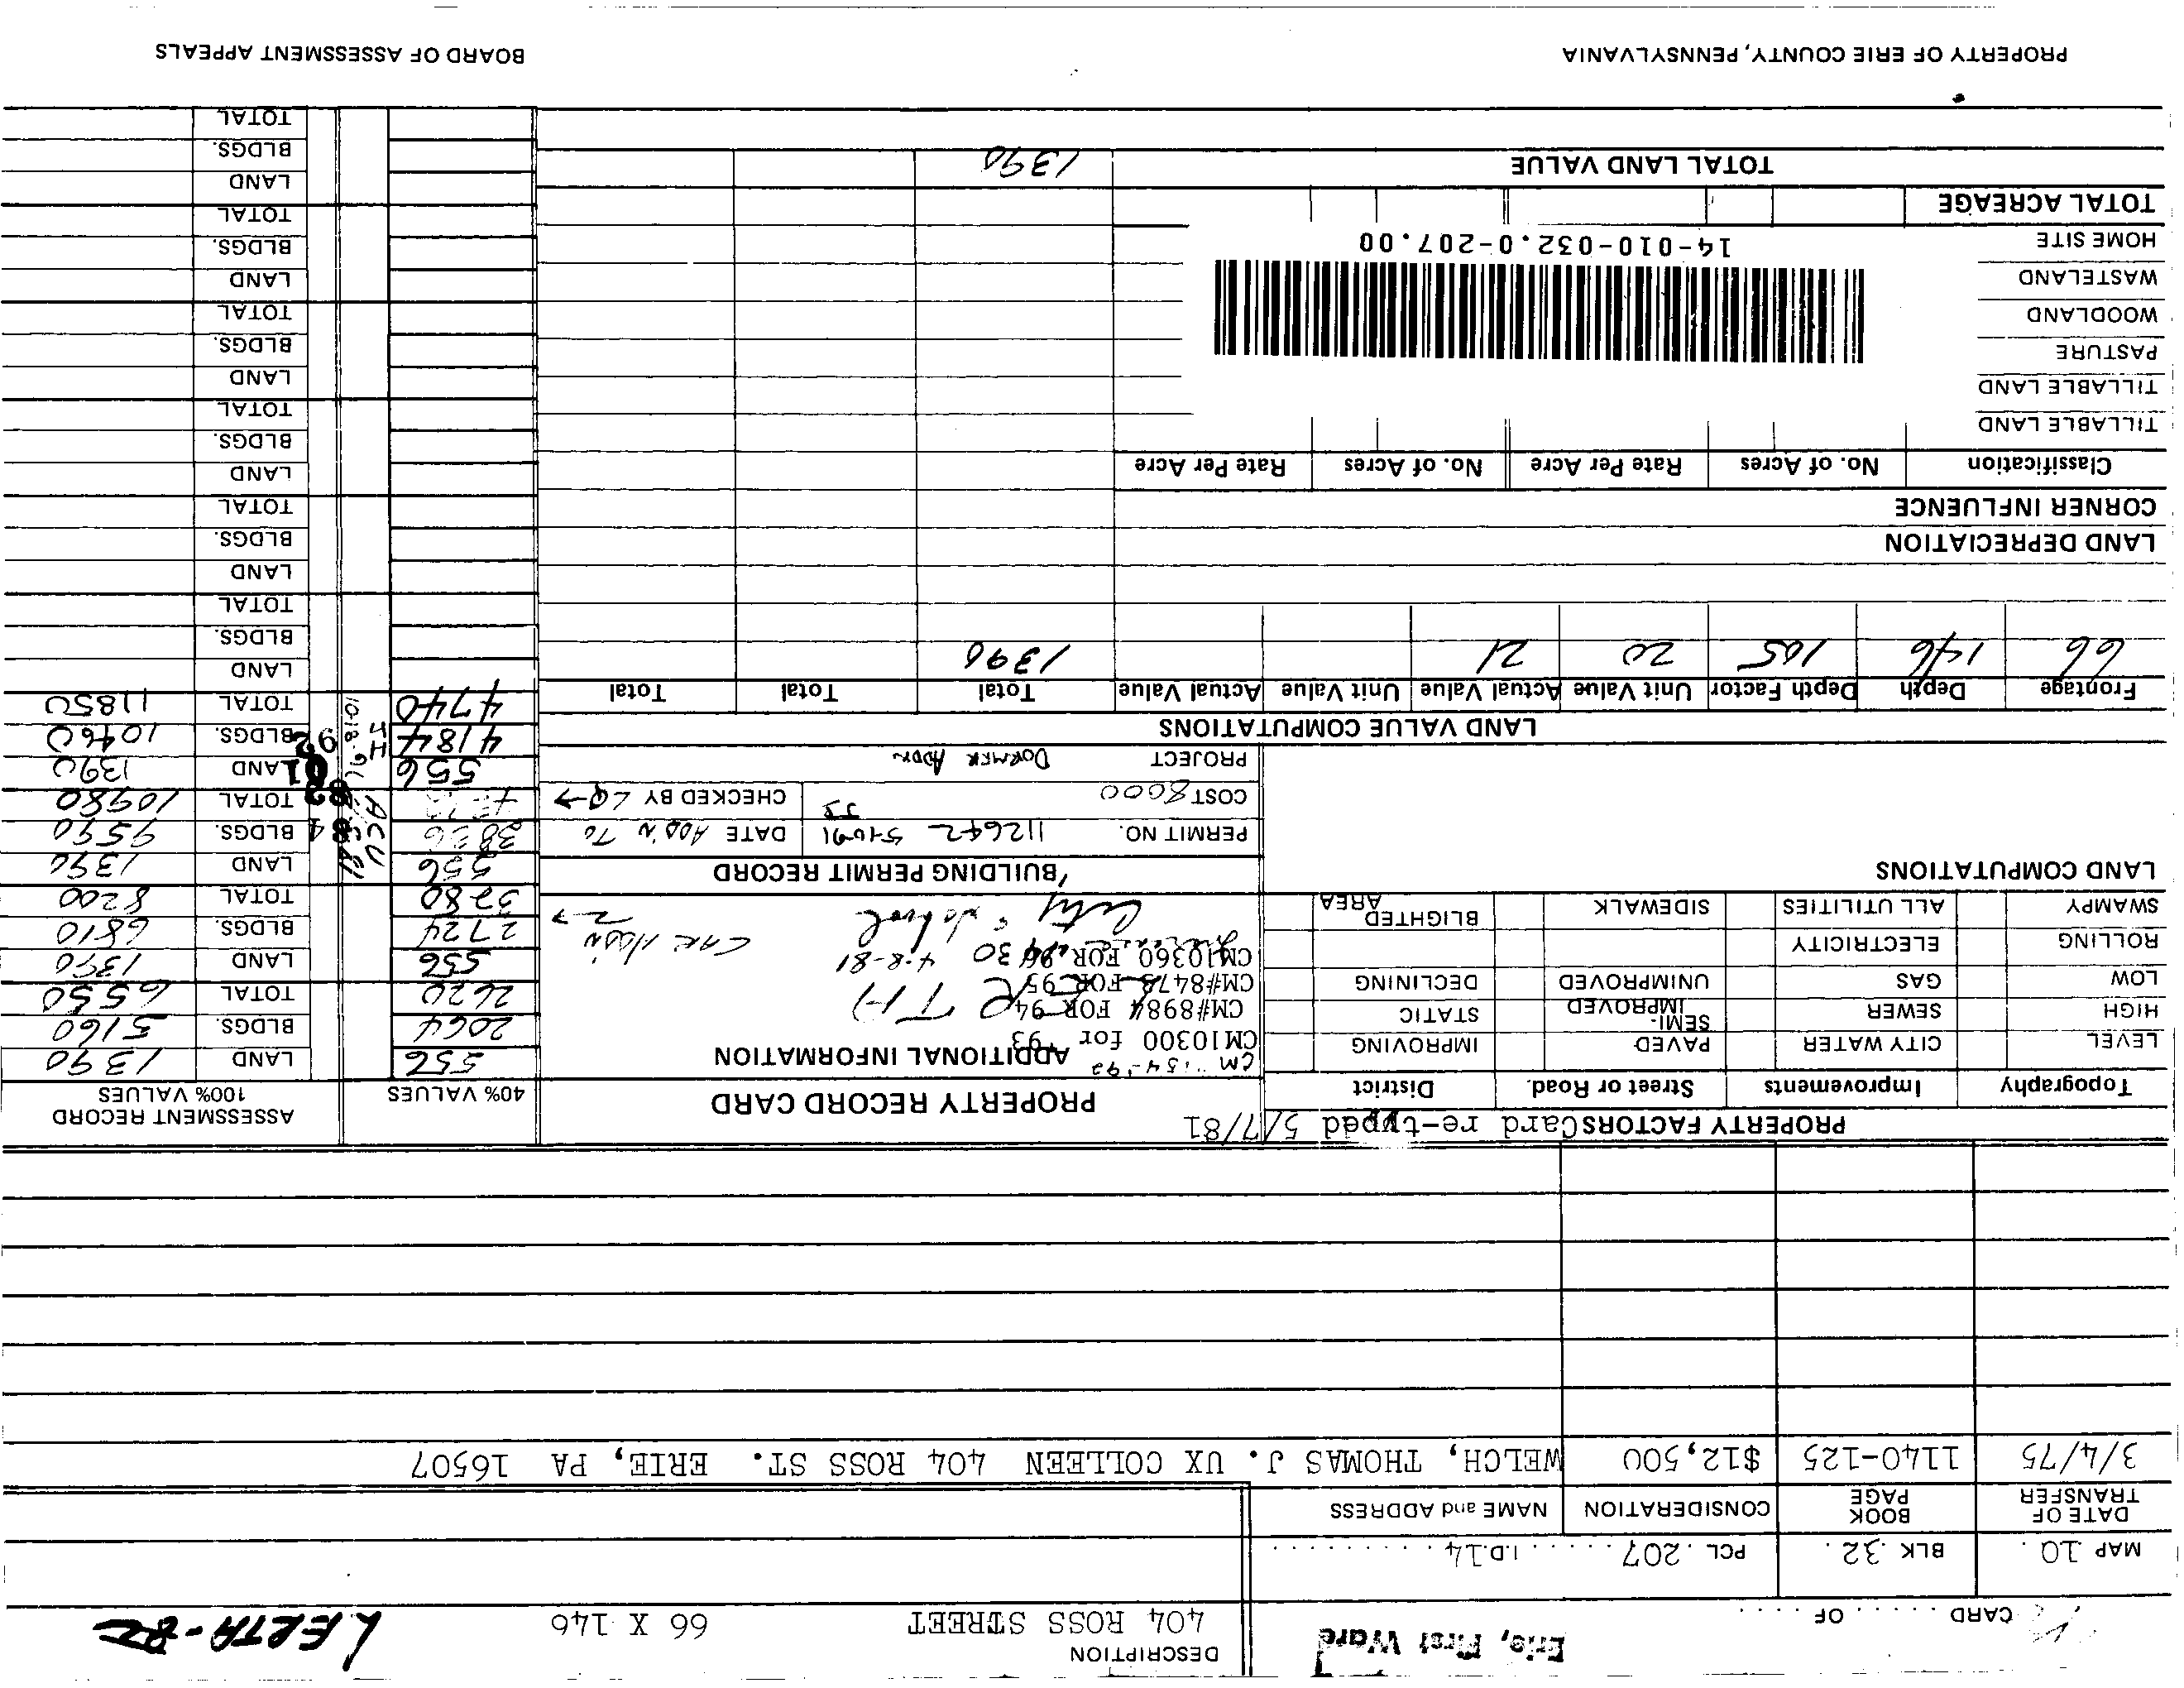 CARD . . . . . OF . . . . .
Erie, First Ward
DESCRIPTION
404 ROSS STREET 66 X 146
LERTA-82
MAP 10 . BLK 32 . PCL . 207 . . . . . . I.D.14 . . . . . . . . .
DATE OF TRANSFER
BOOK PAGE
CONSIDERATION
NAME and ADDRESS
3/4/75 1140-125 $12,500 WELCH, THOMAS J. UX COLLEEN 404 ROSS ST. ERIE, PA 16507
PROPERTY FACTORS Card re-typed 5/7/81
Topography Improvements Street or Road. District
LEVEL CITY WATER PAVED IMPROVING
HIGH SEWER SEMI-IMPROVED STATIC
LOW GAS UNIMPROVED DECLINING
ROLLING ELECTRICITY
SWAMPY ALL UTILITIES SIDEWALK BLIGHTED AREA
LAND COMPUTATIONS
PROPERTY RECORD CARD
ADDITIONAL INFORMATION
CM10300 for 93
CM#8984 FOR 94
CM#8478 FOR 95
CM10360 FOR 96
30 4-8-81
City & School
GAR ADD'N
BUILDING PERMIT RECORD
PERMIT NO. 112642 5-10-91 DATE ADD'N TO
COST 8000 CHECKED BY
PROJECT DORMER ADDN
40% VALUES
ASSESSMENT RECORD
100% VALUES
556 LAND 1390
2064 BLDGS. 5160
2620 TOTAL 6550
556 LAND 1390
2724 BLDGS. 6810
3280 TOTAL 8200
556 LAND 1390
3836 BLDGS. 9590
TOTAL 10980
556 LAND 1390
4184 BLDGS. 10460
4740 TOTAL 11850
LAND
BLDGS.
TOTAL
LAND
BLDGS.
TOTAL
LAND
BLDGS.
TOTAL
LAND
BLDGS.
TOTAL
LAND
BLDGS.
TOTAL
LAND
BLDGS.
TOTAL
LAND VALUE COMPUTATIONS
Frontage Depth Depth Factor Unit Value Actual Value Unit Value Actual Value Total Total Total
66 146 105 20 21 1390
LAND DEPRECIATION
CORNER INFLUENCE
Classification No. of Acres Rate Per Acre No. of Acres Rate Per Acre
TILLABLE LAND
TILLABLE LAND
PASTURE
WOODLAND
WASTELAND
HOME SITE
14-010-032.0-207.00
TOTAL ACREAGE
TOTAL LAND VALUE 1390
PROPERTY OF ERIE COUNTY, PENNSYLVANIA
BOARD OF ASSESSMENT APPEALS